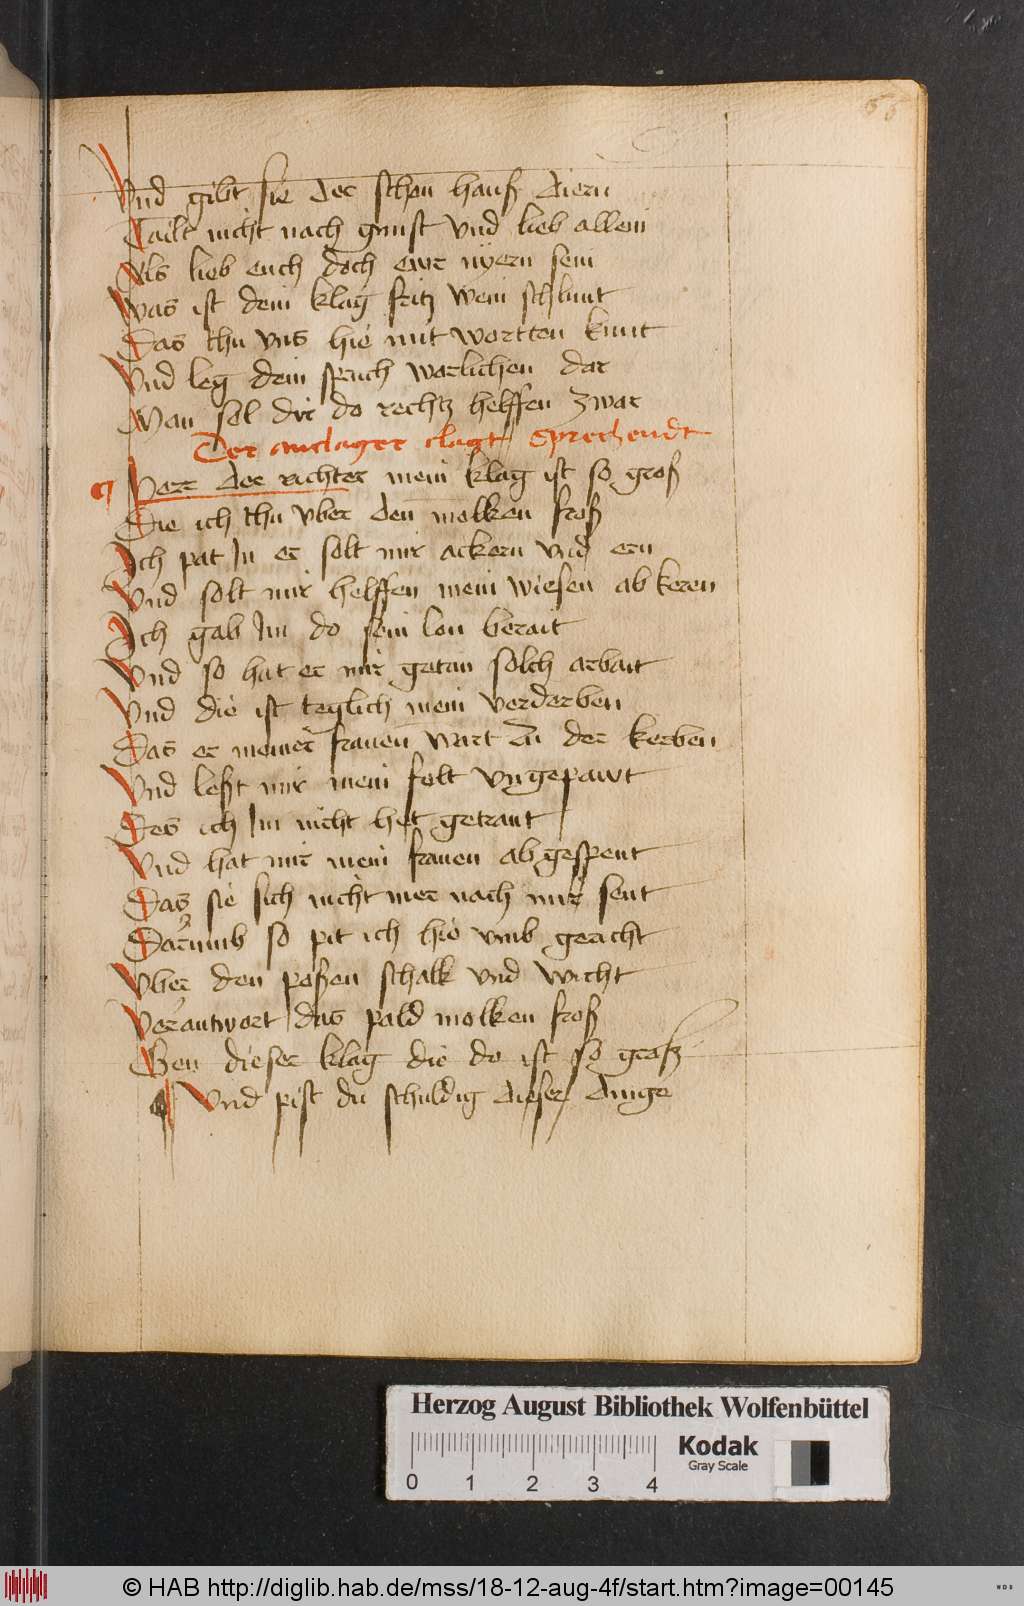 66
Vnd gibt sie der schon hanß diern
Tailt nicht nach gunst vnd lieb allein
Als lieb euch doch ewr nyern sein
Was ist dein klag fritz wein schlunt
Das thu vns hie mit wortten kunt
Vnd leg dein spruch warlichen dar
Man sol dir do rechtz helffen zwar
Der anclager clagt sprechendt
Herr der richter mein klag ist so groß
Die ich thu vber den molken froß
Ich pat In er solt mir ackern vnd ern
Vnd solt mir helffen mein wiesen ab keren
Ich gab Im do sein lon berait
Vnd so hat er mir getan solch arbait
Vnd die ist teglich mein verderben
Das er meiner frauen wart zu der kerben
Vnd leßt mir mein felt vngepawt
Des ich Im nicht het getraut
Vnd hat mir mein frauen abgespent
Das sie sich nicht mer nach mir sent
Darumb so pit ich hie vmb gericht
Vber den poßen schalk vnd wicht
Verantwort das pald molken froß
Gen dieser klag die do ist so groß
Vnd pist du schuldig dieser dinge
Herzog August Bibliothek Wolfenbüttel
Kodak
Gray Scale
0 1 2 3 4
© HAB http://diglib.hab.de/mss/18-12-aug-4f/start.htm?image=00145